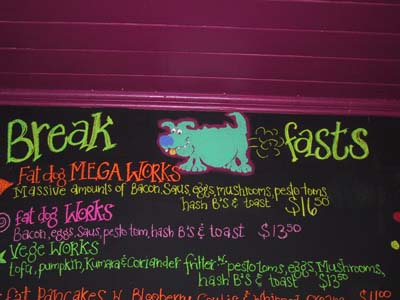 Break fasts
Fat dog MEGA WORKS
Massive amounts of Bacon, Saus, eggs, mushrooms, pesto toms,
hash B's & toast $16.50
fat dog WORKS
Bacon, eggs, Saus, pesto tom, hash B's & toast $13.50
Vege WORKS
tofu, pumpkin, Kumara & Coriander fritter w pesto toms, eggs, Mushrooms,
hash B's & toast $13.50
Fat Pancakes W. Blooberry Coulis & Whipped cream $11.00